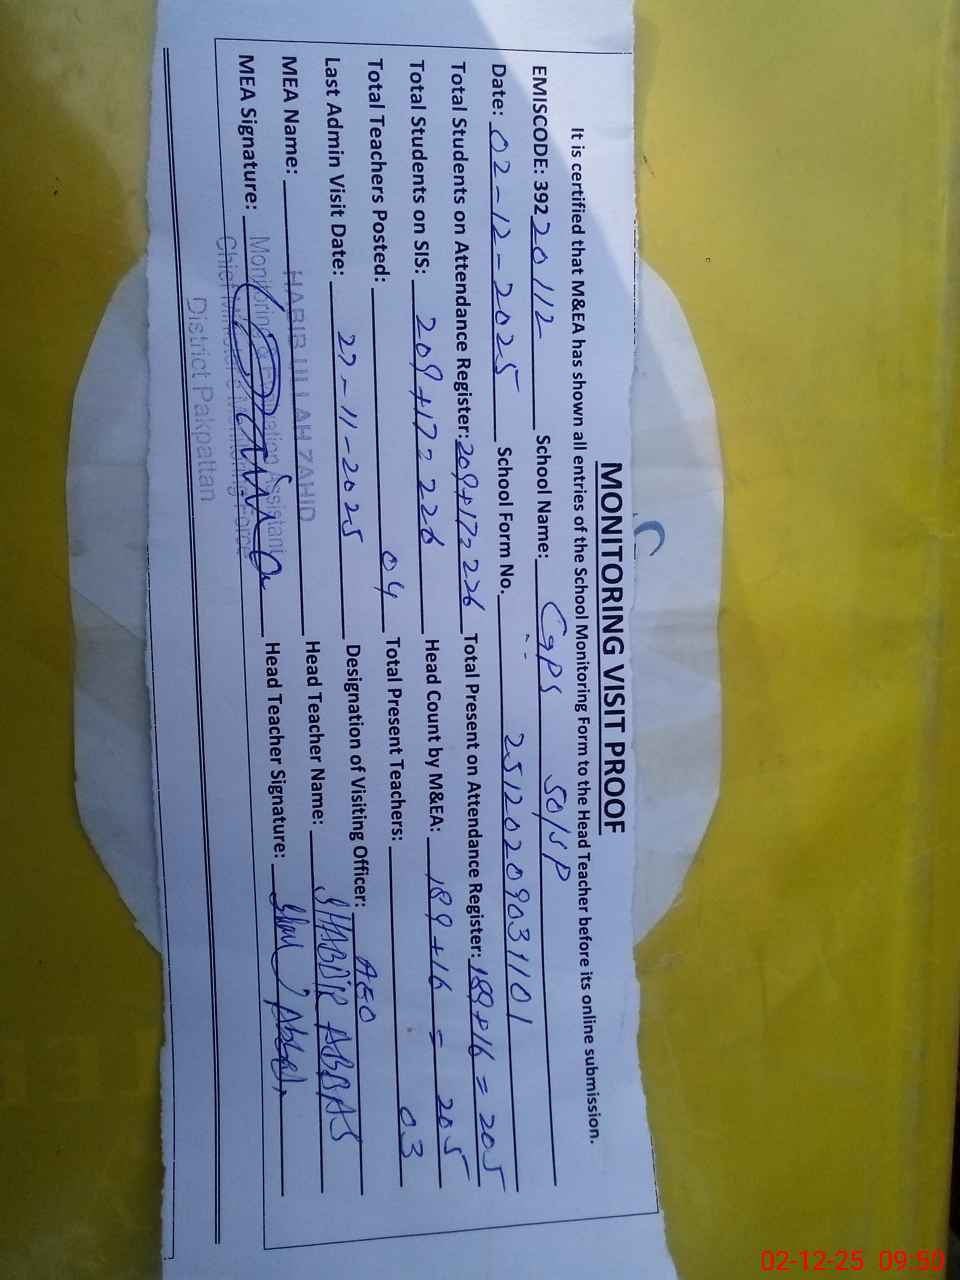 MONITORING VISIT PROOF
It is certified that M&EA has shown all entries of the School Monitoring Form to the Head Teacher before its online submission.
EMISCODE: 392 20112 School Name: GPS 50/SP
Date: 02-12-2025 School Form No. 25120209031101
Total Students on Attendance Register: 209+17=226 Total Present on Attendance Register: 189+16=205
Total Students on SIS: 209+17=226 Head Count by M&EA: 189+16=205
Total Teachers Posted: 04 Total Present Teachers: 03
Last Admin Visit Date: 27-11-2025 Designation of Visiting Officer: AEO
MEA Name: HABIB ULLAH ZAHID Head Teacher Name: SHABBIR ABBAS
MEA Signature: Head Teacher Signature:
Monitoring & Evaluation Assistant
Chief Minister's Monitoring Force
District Pakpattan
02-12-25 09:50